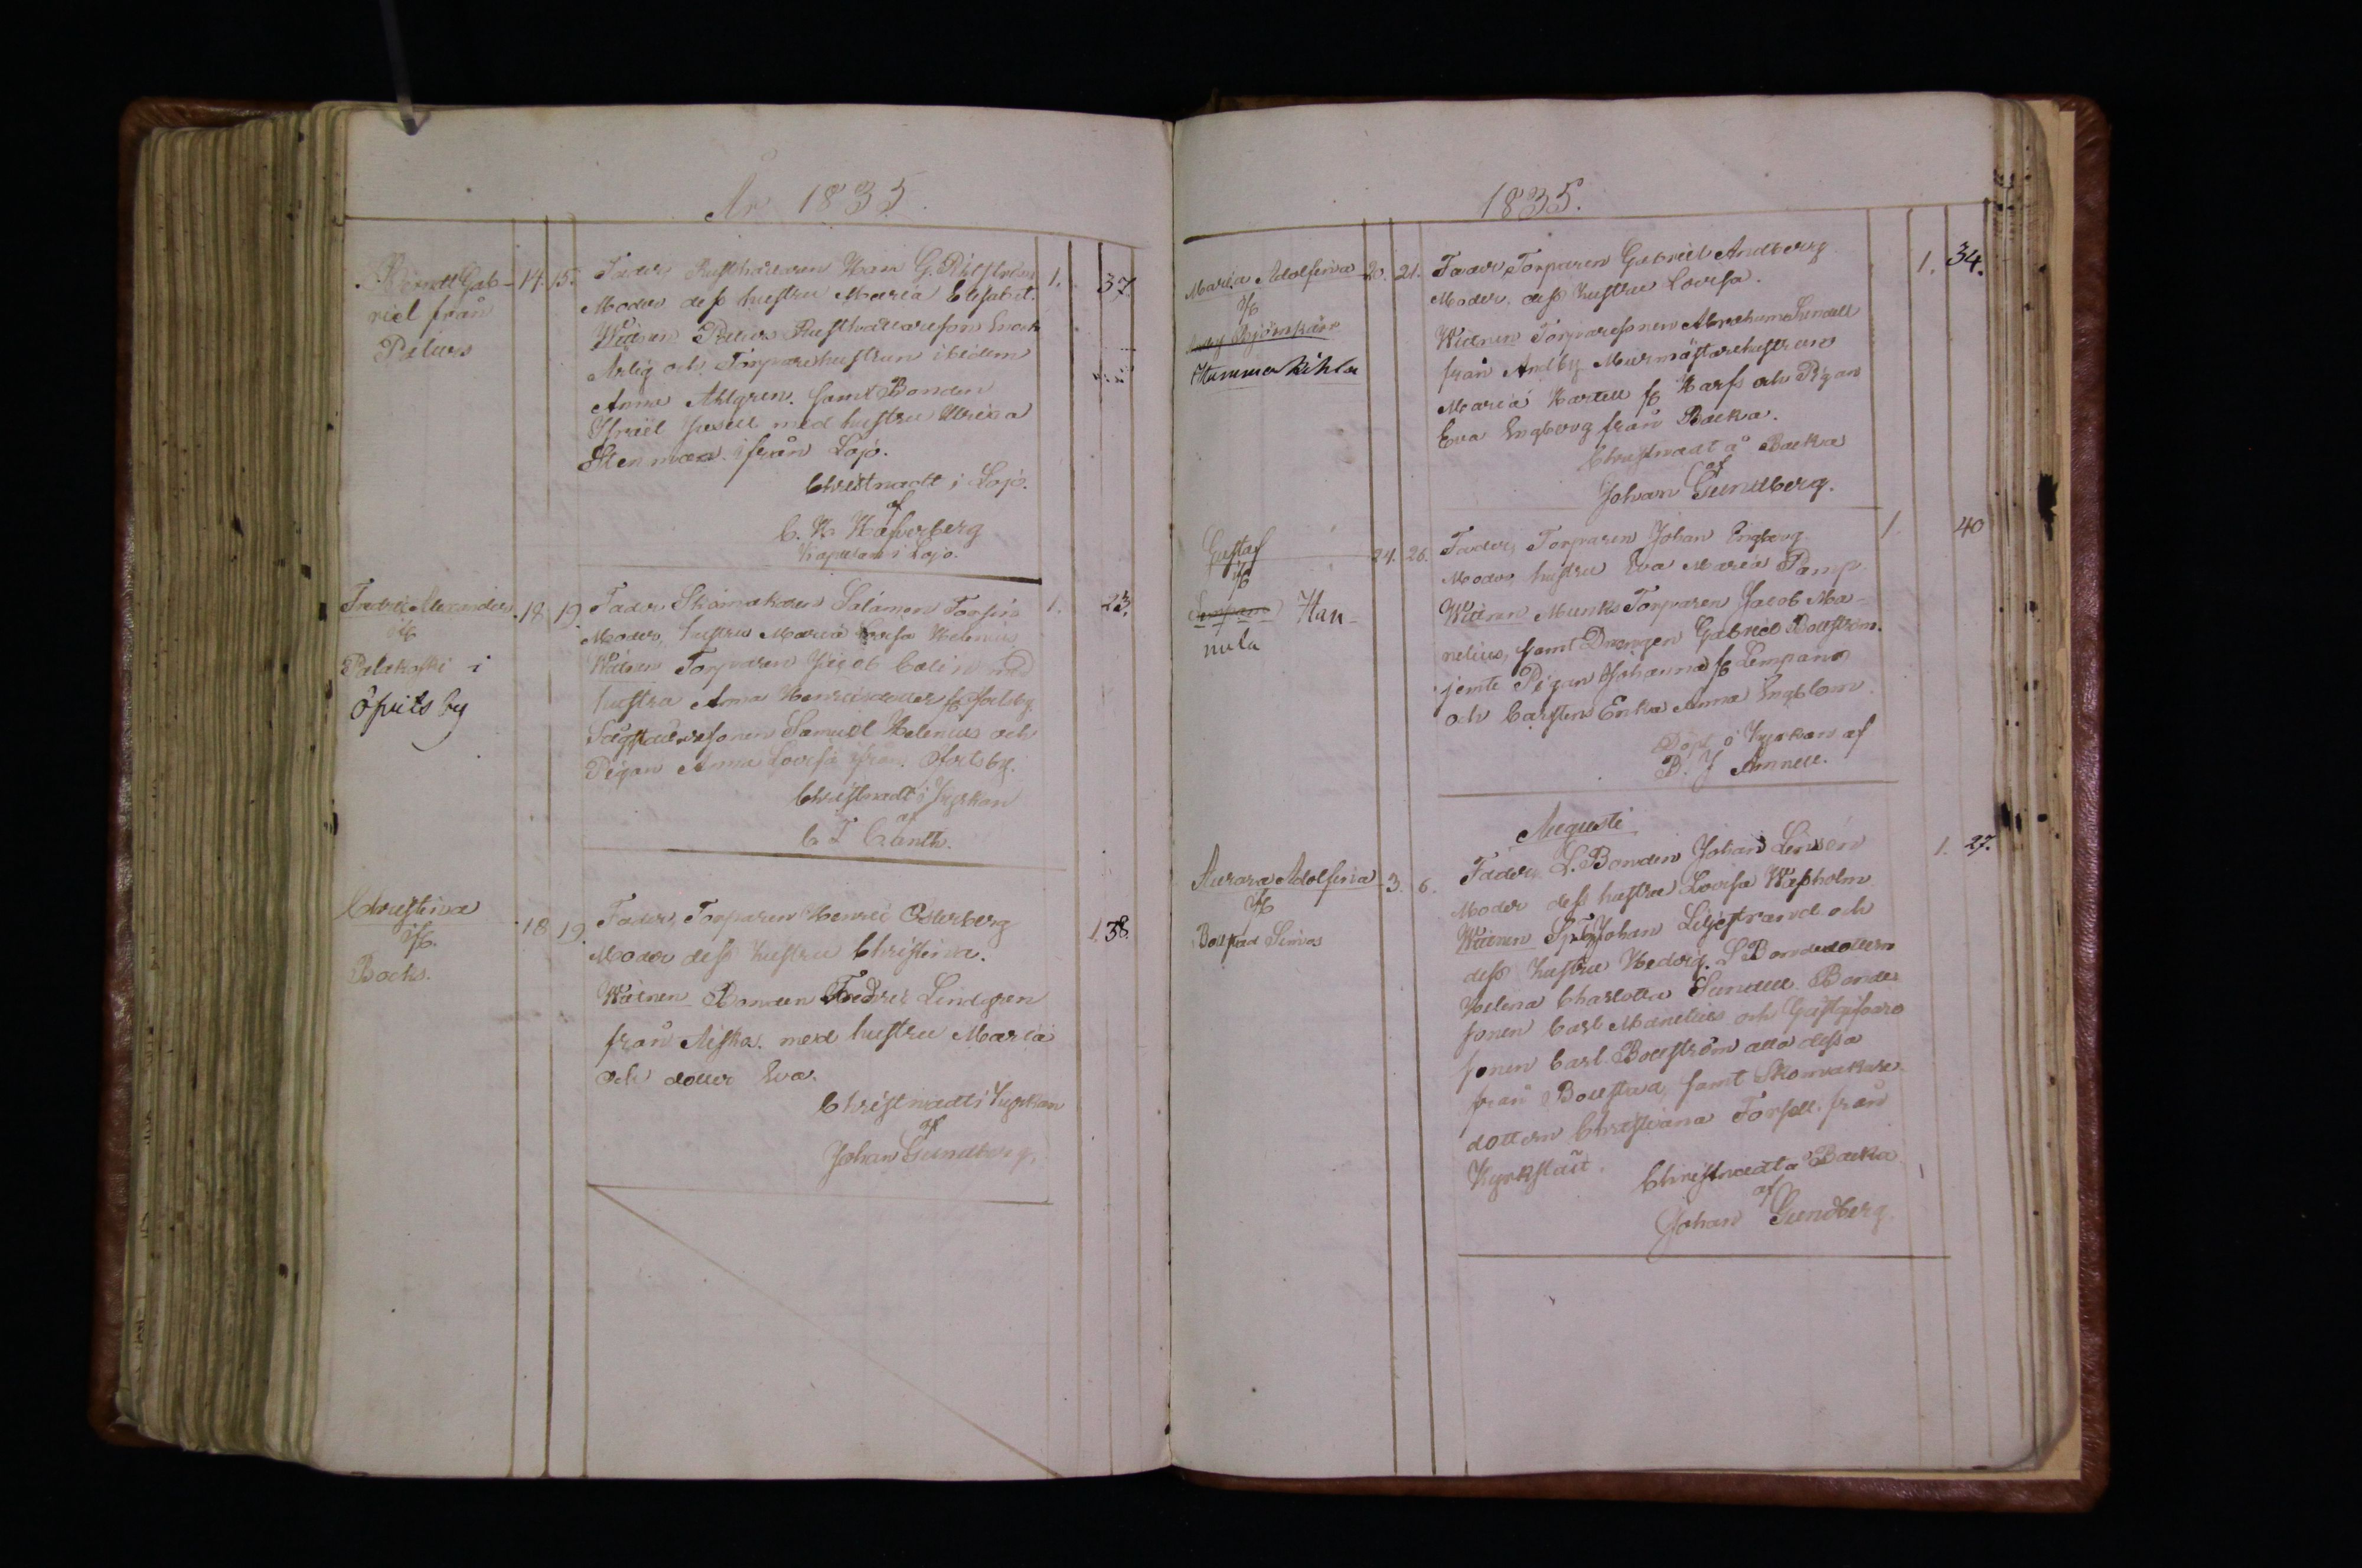 År 1835.
Berndt Gab-
riel från
Pelars
14. 15.
Fader, Rusthållaren Karl G. Rihström
Moder dess hustru Maria Elisabet.
Wittnen Pelars Rusthållaresson Enok
Arlig och Torparehustrun ibidem
Anna Ahlgren. samt Bonden
Israel Jusell med hustru Ulrica
Stenman ifrån Lojo.
Christnadt i Lojo.
af
C. H. Hasverberg
Kapellan i Lojo.
1. 37.
Fredric Alexander
ifr
Palakoski i
Öfvitsby
18 19.
Fader Skomakaren Salomon Forsten
Moder, hustru Maria Lovisa Helenius
Wittnen Torparen Jacob Calin med
hustru Anna Henricsdotter fr Ofvitsby
Sågställaresonen Samuel Helenius och
Pigan Anna Lovisa från Ofvitsby.
Christnadt i Kyrkan
af
C. T. Canth.
1. 23.
Christina
ifr.
Backs.
18 19.
Fader, Torparen Henric Österberg
Moder dess hustru Christina.
Wittnen Bonden Fredric Lindgren
från Aiska. med hustru Maria
och dotter Eva.
Christnadt i Kyrkan
af
Johan Gundberg.
1. 38.
1835.
Maria Adolfina
ifr
Björnkärr
Kihla
20. 21.
Fader, Torparen Gabriel Andberg
Moder, dess hustru Lovisa.
Wittnen Torparesonen Abraham Sundell
från Andby Murmästarehustrun
Maria Hartell fr Karfs och Pigan
Eva Engberg från Backa.
Christnadt å Backa
af
Johan Gundberg.
1. 34.
Gustaf
ifr
Lempans Han-
nula
24. 26.
Fader, Torparen Johan Engberg
Moder, hustru Eva Maria Pamp.
Wittnen Munks Torparen Jacob Ma-
nelius, samt Drängen Gabriel Bollström.
jemte Pigan Johanna fr Lempans
och Carstens Enka Anna Engblom.
Döpt i Kyrkan af
B. J. Amnell.
1. 40
Augusti
Aurora Adolfina
ifr
Bollstad Simos
3. 6.
Fader, L. Bonden Johan Linsén
Moder dess hustru Lovisa Washolm
Wittnen Johan Liljestrand och
dess hustru Hedvig. L Bondedottern
Helena Charlotta Sundell Bonde
sonen Carl Manelius och Gästgifvare
sonen Carl Bollström alla dessa
från Bollstad, samt Skomakare
dottern Christiana Forsell. från
Kyrkstält.
Christnadt å Backa
af
Johan Gundberg
1. 27.